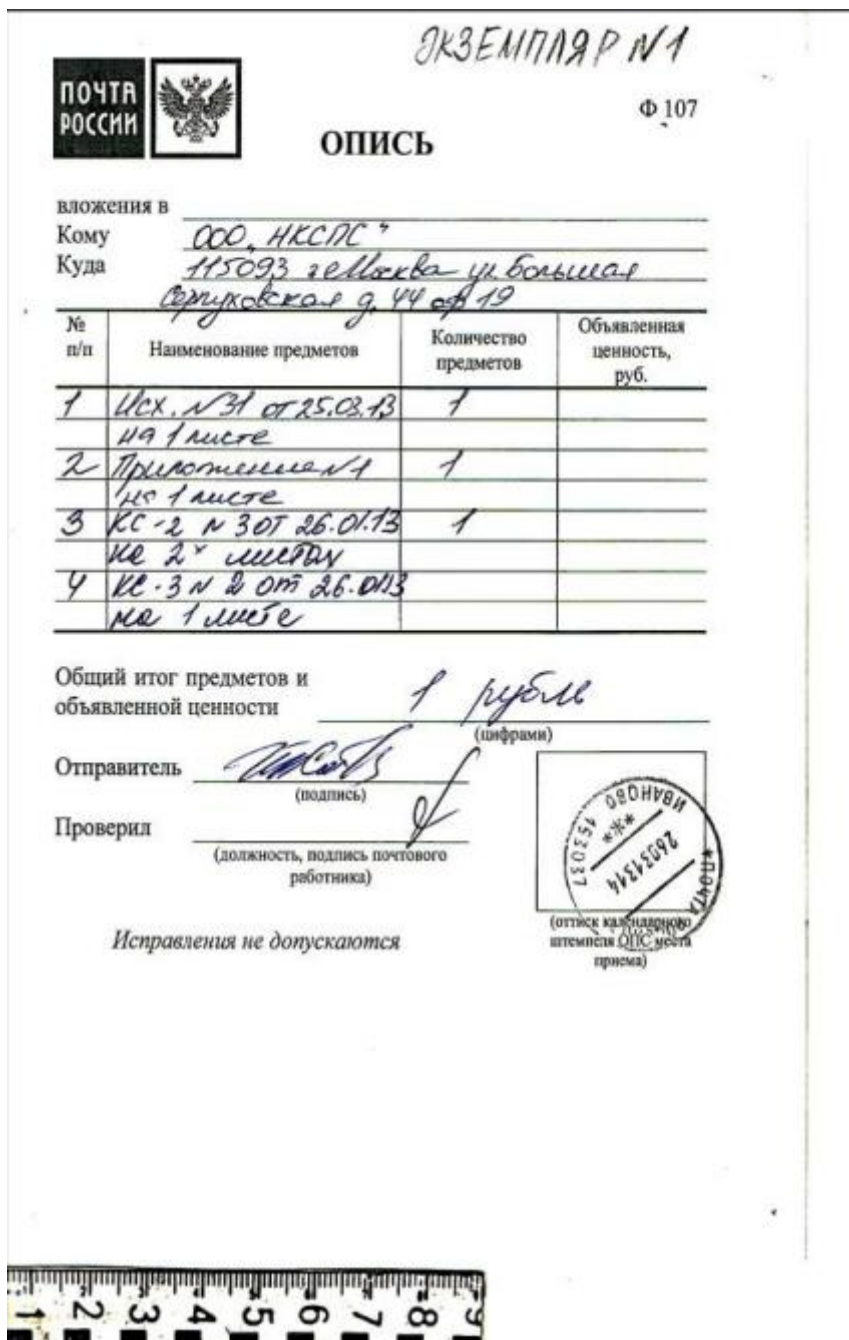 ЭКЗЕМПЛЯР №1
ПОЧТА
РОССИИ
Ф 107
ОПИСЬ
вложения в
Кому ООО „НКСПС"
Куда 115093 г Москва ул. Большая
Серпуховская д. 44 оф 19
№ п/п Наименование предметов Количество предметов Объявленная ценность, руб.
1 Исх. №31 от 25.03.13 1
на 1 листе
2 Приложение №1 1
на 1 листе
3 КС-2 № 3 от 26.01.13 1
на 2х листах
4 КС-3 № 2 от 26.01.13
на 1 листе
Общий итог предметов и
объявленной ценности 1 рубль
(цифрами)
Отправитель
(подпись)
Проверил
(должность, подпись почтового
работника)
ИВАНОВО
153037
26031314
*ПОЧТА
(оттиск календарного
штемпеля ОПС места
приема)
Исправления не допускаются
1 2 3 4 5 6 7 8 9